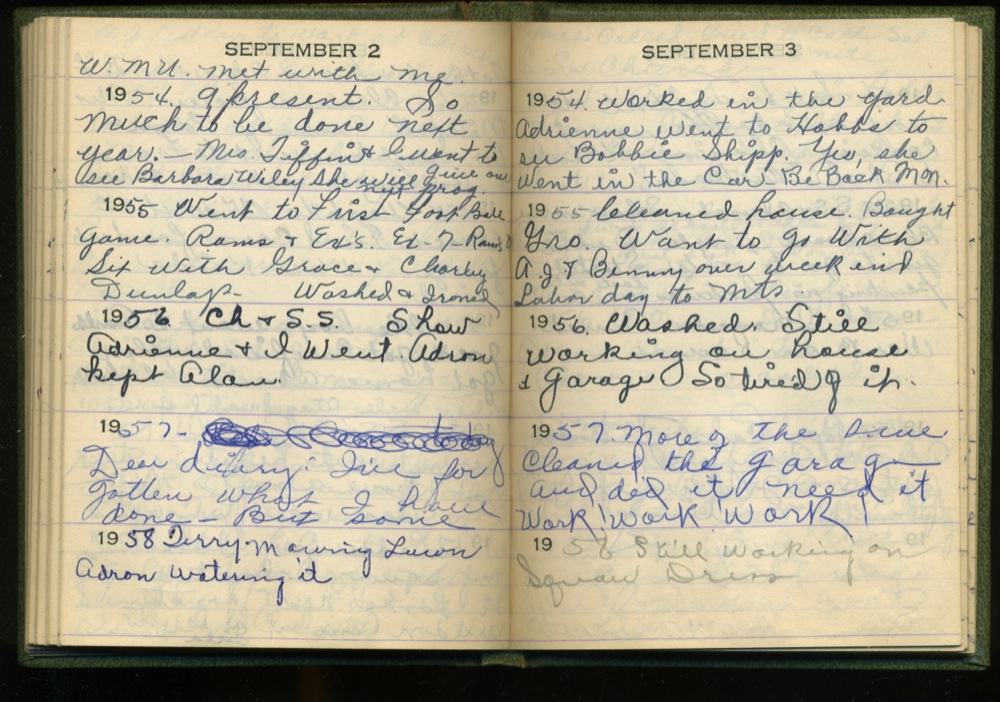 SEPTEMBER 2
W. M. U. met with me.
1954. 9 present. So
much to be done next
year. — Mrs. Tiffin & I went to
see Barbara Wiley she will give our
next prog.
1955 Went to First Foot Ball
game. Rams & Ex's. Ex-7-Rams 0
Sit With Grace & Charley
Dunlap- Washed & Ironed
1956 Ch & S.S. Show
Adrienne & I Went. Adron
kept Alan.
1957- today
Dear diary: I've for
gotten what I have
done — But some
1958 Terry Mowing Lawn
Adron watering it
SEPTEMBER 3
1954. Worked in the yard
Adrienne went to Hobbs to
see Bobbie Shipp. Yes, she
Went in the Car. Be Back Mon.
1955 Cleaned house. Bought
Gro. Want to go With
A.J. & Bennny over week end
Labor day to Mts.
1956. Washed. Still
working on house
& Garage So tired of it.
1957. More of the same.
Cleaned the garage
and did it need it
Work! Work! Work!
1958 Still working on
Squaw Dress